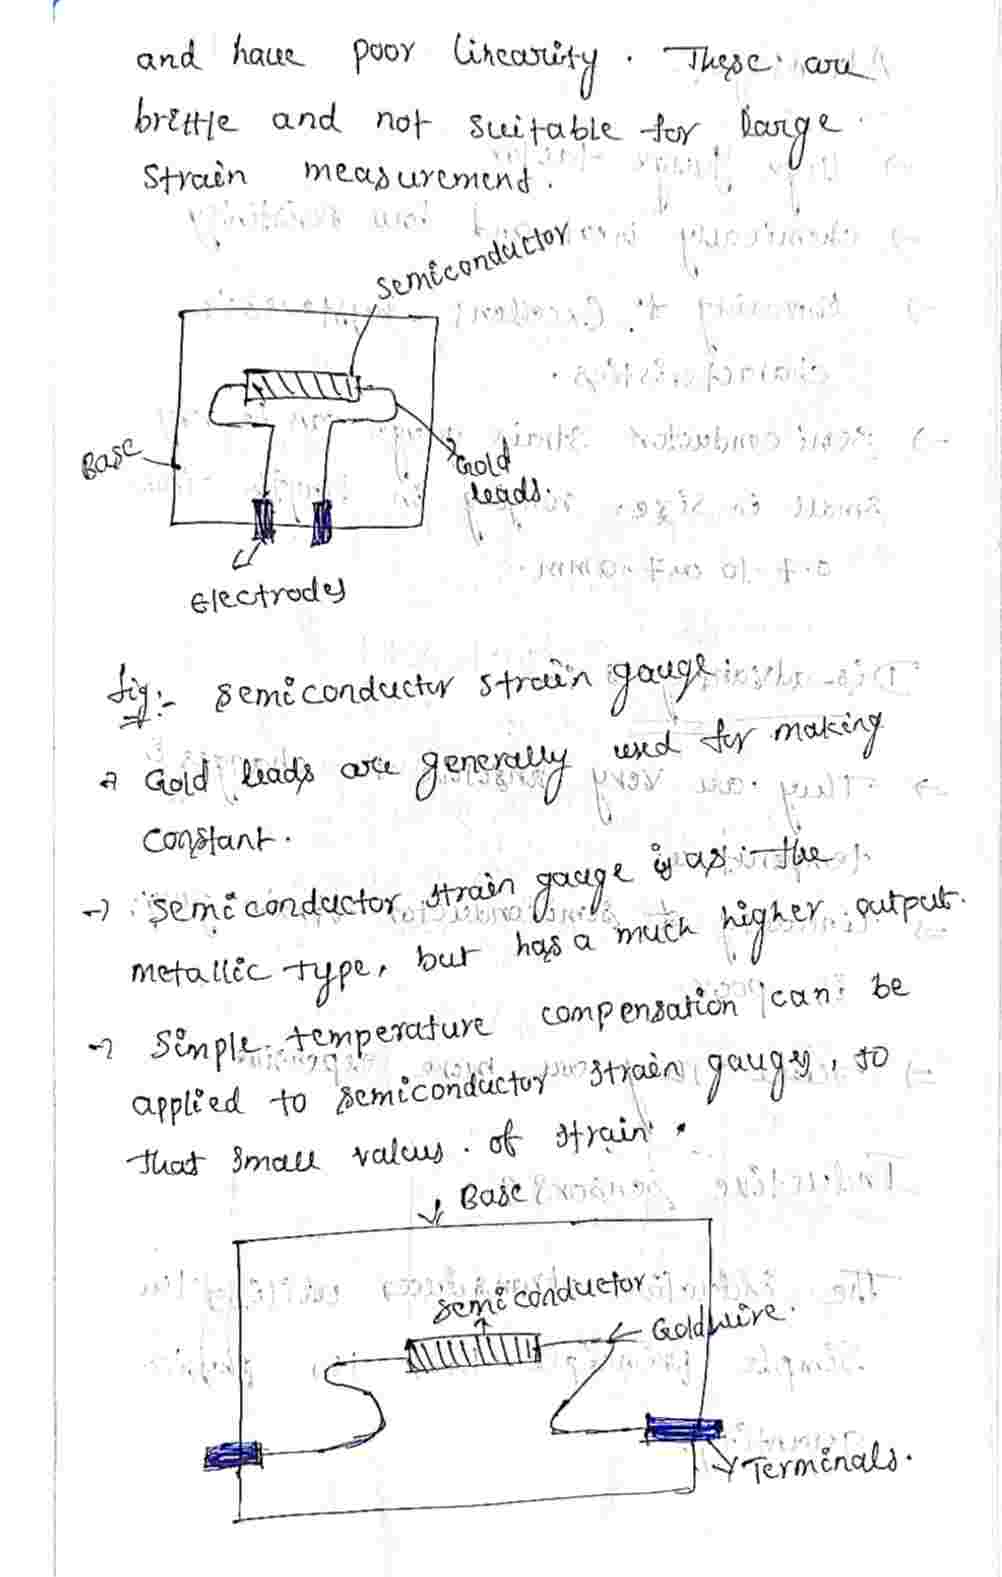 and have poor linearity. These are
brittle and not suitable for large
strain measurement.
semiconductor
Base
Gold
leads.
Electrodes
fig:- semiconductor strain gauge
→ Gold leads are generally used for making
constant.
→ semiconductor strain gauge is as the
metallic type, but has a much higher output.
→ Simple temperature compensation can be
applied to semiconductor strain gauges, so
that small values of strain.
Base
semiconductor
Gold wire.
Terminals.